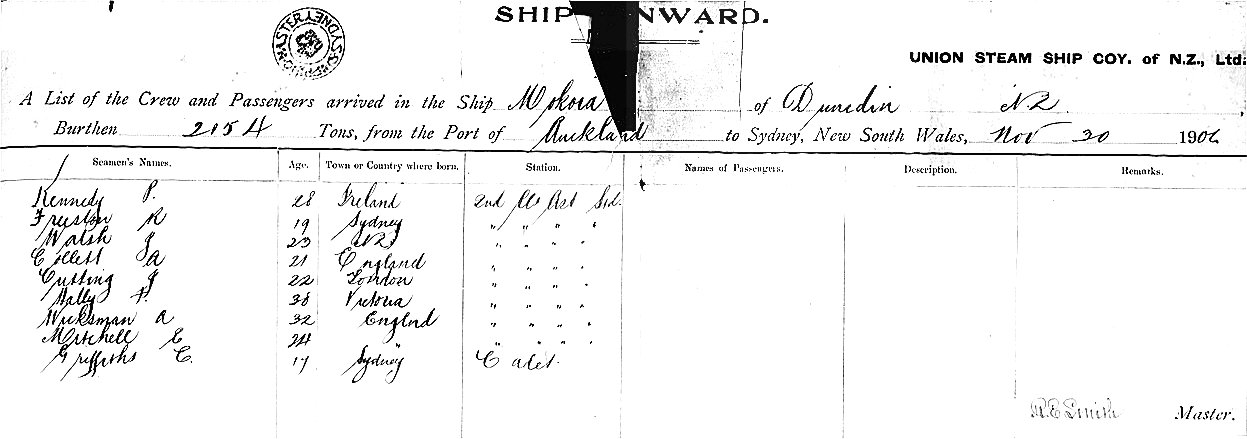 SHIP INWARD.
UNION STEAM SHIP COY. of N.Z., Ltd.
A List of the Crew and Passengers arrived in the Ship Mokoia of Dunedin NZ
Burthen 2154 Tons, from the Port of Auckland to Sydney, New South Wales, Nov 30 1906
Seamen's Names. Age. Town or Country where born. Station. Names of Passengers. Description. Remarks.
Kennedy P. 28 Ireland 2nd Cl Ast Std.
R 19 Sydney " " " "
Walsh J 23 NZ " " " "
Collett JA 21 England " " " "
Cutting J 22 London " " " "
38 Victoria " " " "
A 32 England " " " "
Mitchell E 24 " " " " "
Griffiths C. 17 Sydney Cadet
R.E. Smith Master.